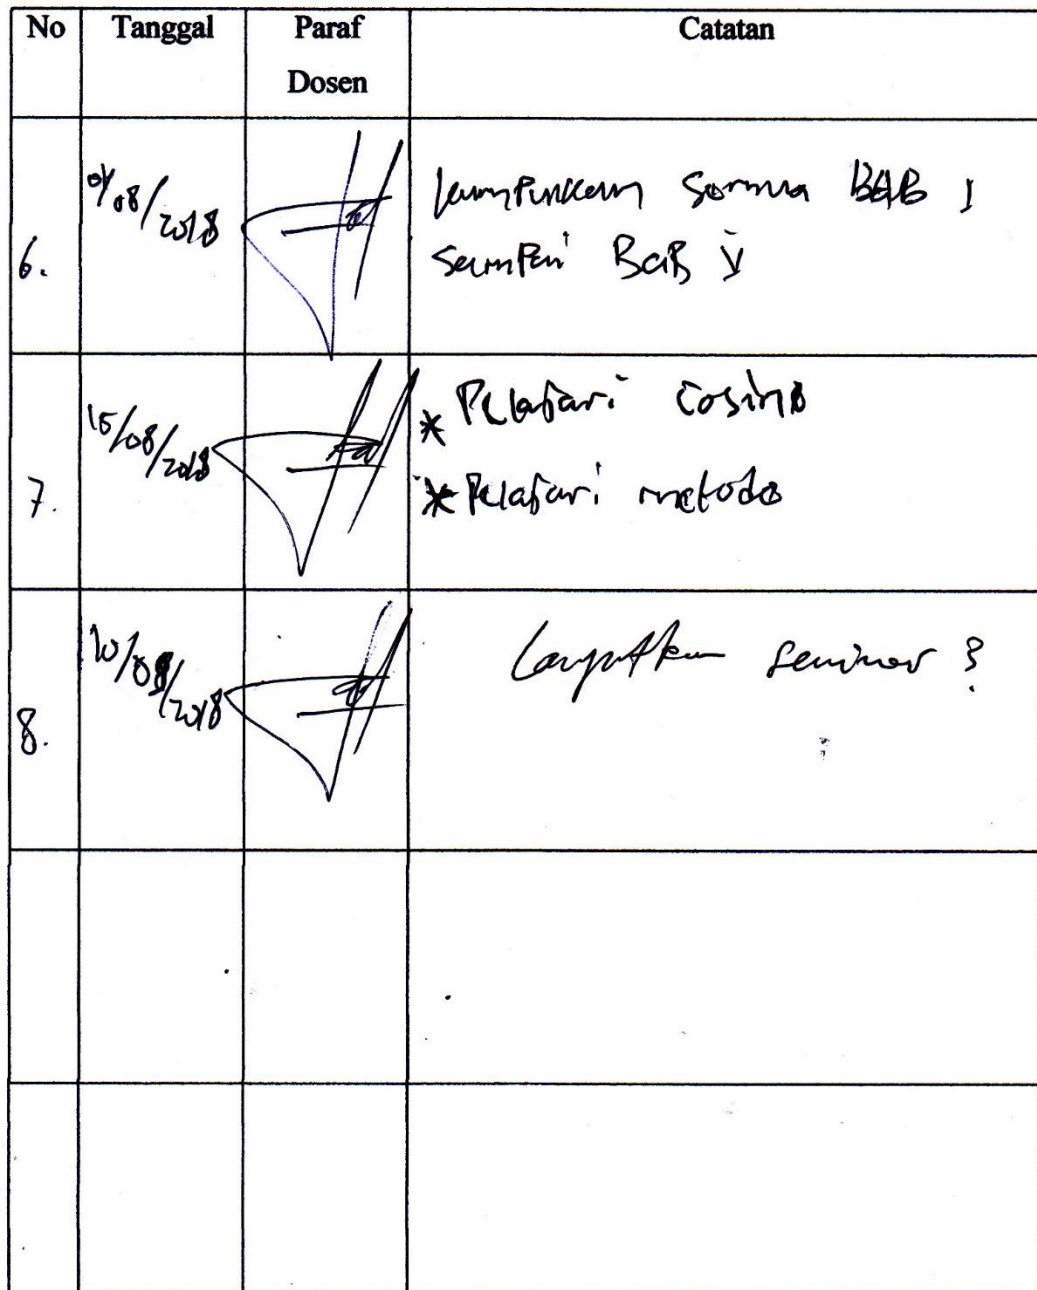 No Tanggal Paraf Dosen Catatan
6. 01/08/2018 kumpulkan semua BAB I
sampai BAB V
7. 15/08/2018 * Pelajari cosine
* Pelajari metode
8. 20/08/2018 Lanjutkan seminar